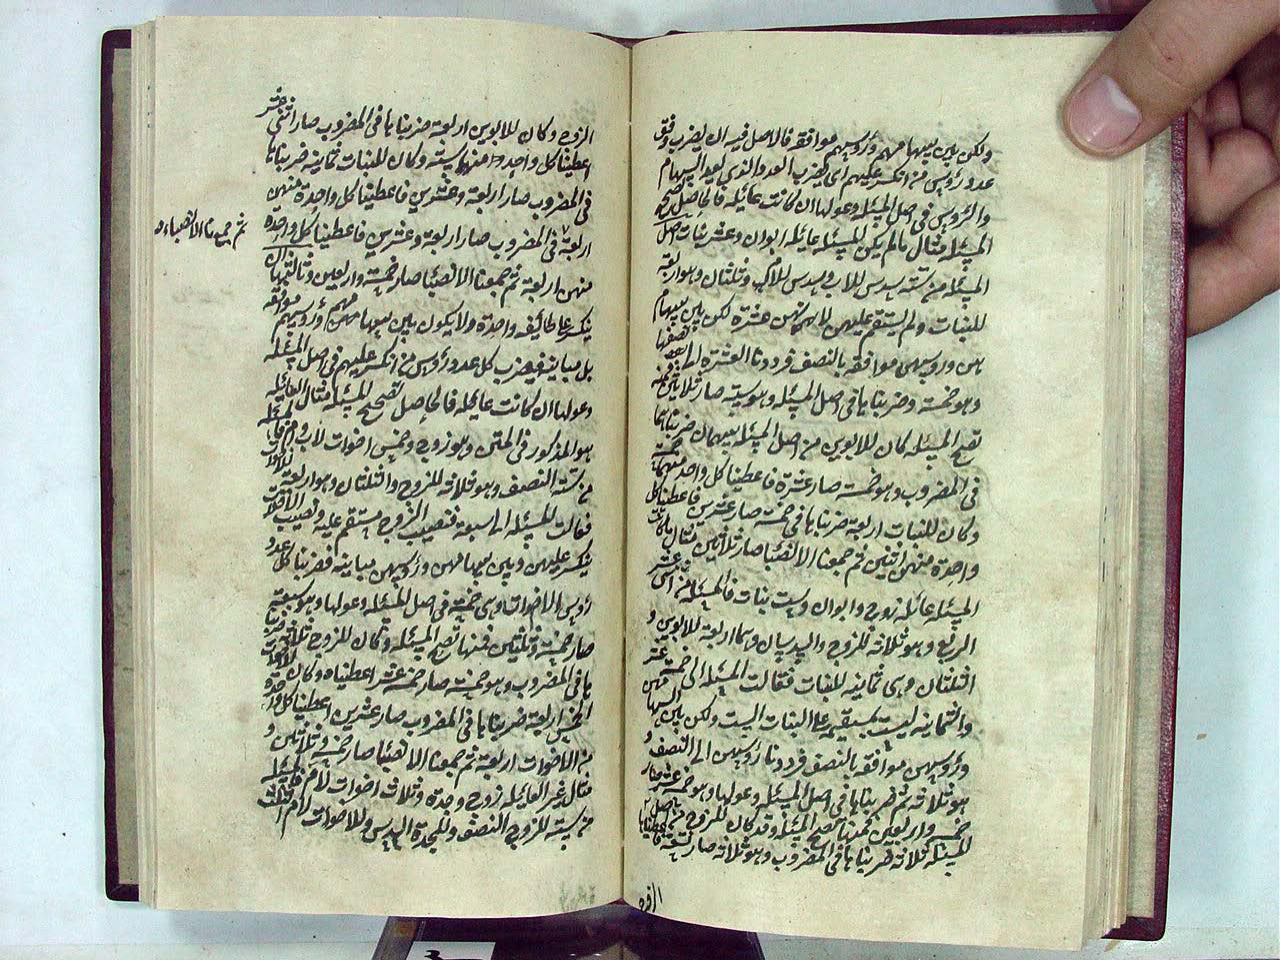 ولكن بين سهامهم ورؤسهم موافقة فالاصل فيه ان يضرب وفق
عدد رؤس من انكسر عليهم اى يضرب العدد الذى بعد السهام
والرؤس فى اصل المسئلة وعولها ان كانت عائلة فالحاصل تصح
المسئلة مثال مالم يكن المسئلة عائلة ابوان وعشر بنات اصل
المسئلة من ستة سدس للاب وسدس للام وثلثان وهو اربعة
للبنات ولم يستقم عليهن لانهن عشرة لكن بين سهام
هن ورؤسهن موافقة بالنصف فرددنا العشرة الى نصفها
وهو خمسة وضربناها فى اصل المسئلة وهو ستة صار ثلاثين فمنه
تصح المسئلة كان للابوين من اصل المسئلة سهمان ضربناهما
فى المضروب وهو خمسة صار عشرة فاعطينا كل واحد منهما خمسة
وكان للبنات اربعة ضربناها فى خمسة صار عشرين فاعطينا كل
واحدة منهن اثنين ثم جمعنا الانصباء صار ثلاثين مثال ما كانت
المسئلة عائلة زوج وابوان وست بنات فالمسئلة من اثنى عشر
الربع وهو ثلاثة للزوج والسدسان وهما اربعة للابوين و
الثلثان وهى ثمانية للبنات فعالت المسئلة الى خمسة عشر
والثمانية ليست بمستقيم على البنات الست ولكن بين سهامهن
ورؤسهن موافقة بالنصف فرددنا رؤسهن الى النصف و
هو ثلاثة ثم ضربناها فى اصل المسئلة وعولها وهو خمسة عشر صار
خمسة واربعين فمنها تصح المسئلة وقد كان للزوج من اصل
المسئلة ثلاثة ضربناها فى المضروب وهو ثلاثة صار تسعة فاعطيناها
الزوج
الزوج وكان للابوين اربعة ضربناها فى المضروب صار اثنى عشر
اعطينا كل واحد منهما ستة وكان للبنات ثمانية ضربناها
فى المضروب صار اربعة وعشرين فاعطينا كل واحدة منهن
اربعة فى المضروب صار اربعة وعشرين فاعطينا كل واحدة
منهن اربعة ثم جمعنا الانصباء صار خمسة واربعين وثالثها ان
ينكسر على طائفة واحدة ولا يكون بين سهامهم ورؤسهم موافقة
بل مباينة فيضرب كل عدد رؤس من انكسر عليهم فى اصل المسئلة
وعولها ان كانت عائلة فالحاصل تصحيح المسئلة مثال العائلة
هو المذكور فى المتن وهو زوج وخمس اخوات لاب وام اصل المسئلة
من ستة النصف وهو ثلاثة للزوج والثلثان وهو اربعة للاخوات
فعالت المسئلة الى سبعة فنصيب الزوج مستقيم عليه ونصيب الاخوات
ينكسر عليهن وبين سهامهن ورؤسهن مباينة فضربنا كل عدد
رؤس الاخوات وهى خمسة فى اصل المسئلة وعولها وهو سبعة
صار خمسة وثلثين فمنها تصح المسئلة وكان للزوج ثلاثة ضربنا
ها فى المضروب وهو خمسة صار خمسة عشر اعطيناه وكان للاخوات
الخمس اربعة ضربناها فى المضروب صار عشرين اعطينا كل واحدة
من الاخوات اربعة ثم جمعنا الانصباء صار خمسة وثلاثين و
مثال غير العائلة زوج وجدة وثلاث اخوات لام فالمسئلة
من ستة للزوج النصف وللجدة السدس وللاخوات لام الثلث
ثم جمعنا الانصباء